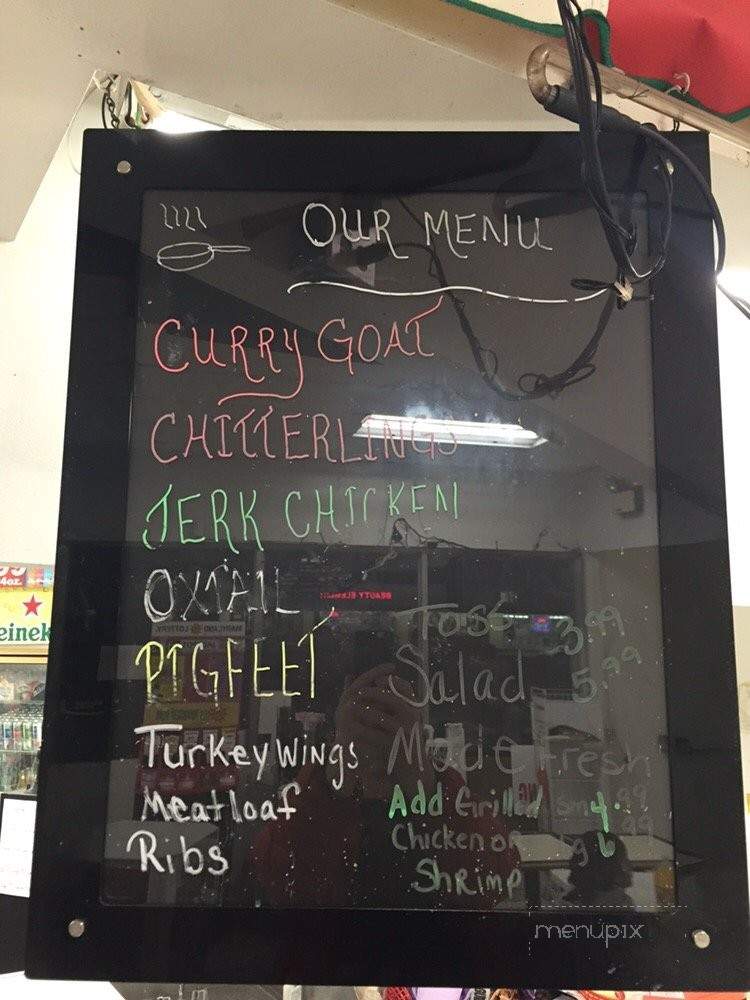 OUR MENU
CURRY GOAT
CHITTERLINGS
JERK CHICKEN
OXTAIL
PIGFEET
Turkey Wings
Meatloaf
Ribs
Toss 3.99
Salad 5.99
Made Fresh
Add Grilled sm 4.99
Chicken or lg 6.99
Shrimp
einek
menupix